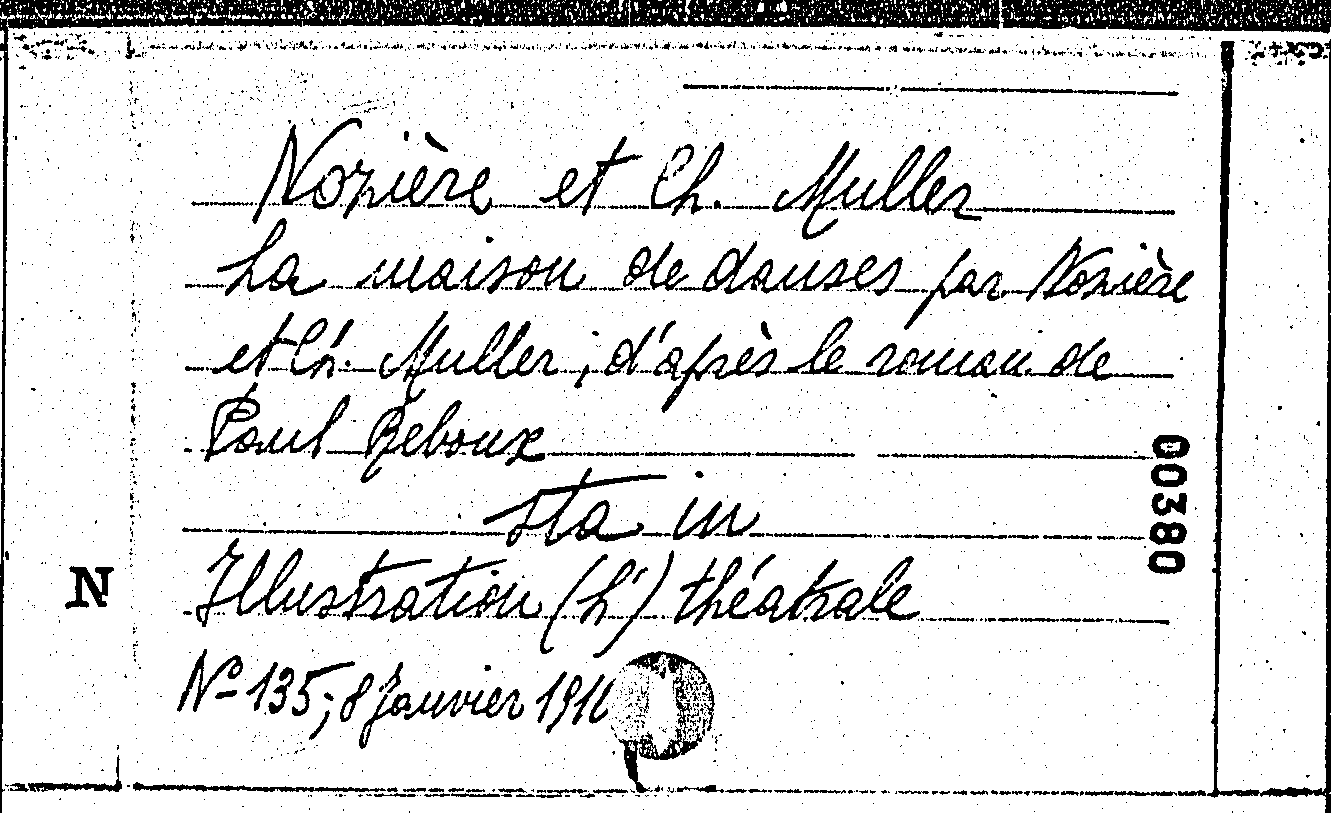 Nozière et Ch. Muller
La maison de danses par Nozière
et Ch. Muller, d'après le roman de
Paul Reboux
sta in
Illustration (L') théatrale
Nº 135; 8 Janvier 1910
N
00380